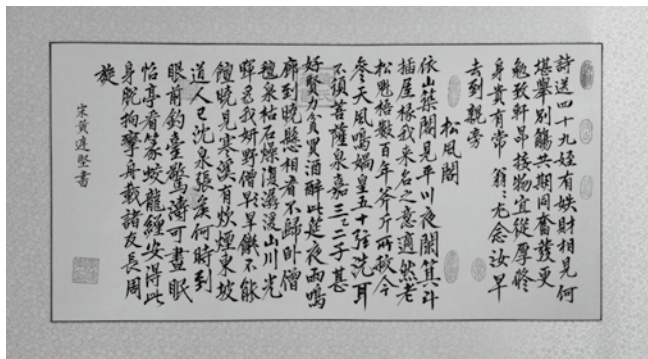 詩送四十九姪有妷財相見何
堪舉別觴共期同奮發更
勉致軒昂接物宜從厚脩
身貴有常翁〻尤念汝早
去到親旁
松風閣
依山築閣見平川夜闌箕斗
插屋椽我來名之意適然老
松魁梧數百年斧斤所赦今
參天風鳴媧皇五十弦洗耳
不須菩薩泉嘉三二子甚
好賢力貧買酒醉此筵夜雨鳴
廊到曉懸相看不歸臥僧
氊泉枯石燥復潺湲山川光
暉爲我妍野僧早飢不能
饘曉見寒溪有炊煙東坡
道人已沈泉張矦何時到
眼前釣臺驚濤可晝眠
怡亭看篆蛟龍纏安得此
身脫拘攣舟載諸友長周
旋
宋黃庭堅書